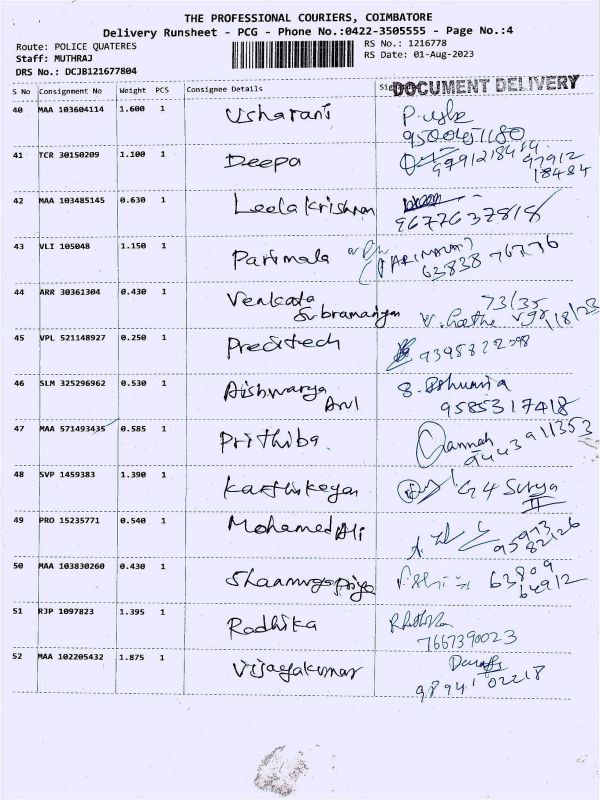 THE PROFESSIONAL COURIERS, COIMBATORE
Delivery Runsheet - PCG - Phone No.:0422-3505555 - Page No.:4
Route: POLICE QUATERES
RS No.: 1216778
Staff: MUTHRAJ
RS Date: 01-Aug-2023
DRS No.: DCJB121677804
DOCUMENT DELIVERY
S No Consignment No Weight PCS Consignee Details
40 MAA 103604114 1.600 1 Usharani
9500451180
41 TCR 30150209 1.100 1 Deepa
97912
18484
42 MAA 103485145 0.630 1 Leela Krishnan
9677637818
43 VLI 105048 1.150 1 Parimala
(PARIMALA)
63838 76776
44 ARR 30361304 0.430 1 Venkata
Subramaniyan
73/35
45 VPL 521148927 0.250 1 Preditech
46 SLM 325296962 0.530 1 Aishwarya
Arul
9585317418
47 MAA 571493435 0.585 1 Prithiba
9443911353
48 SVP 1459383 1.390 1 Karthikeyan
G4 Surya
II
49 PRO 15235771 0.540 1 Mohamed Ali
95973
82126
50 MAA 103830260 0.430 1 Shanmugapriya
63809
64912
51 RJP 1097823 1.395 1 Radhika
7667390023
52 MAA 102205432 1.875 1 Vijayakumar
98941 02218